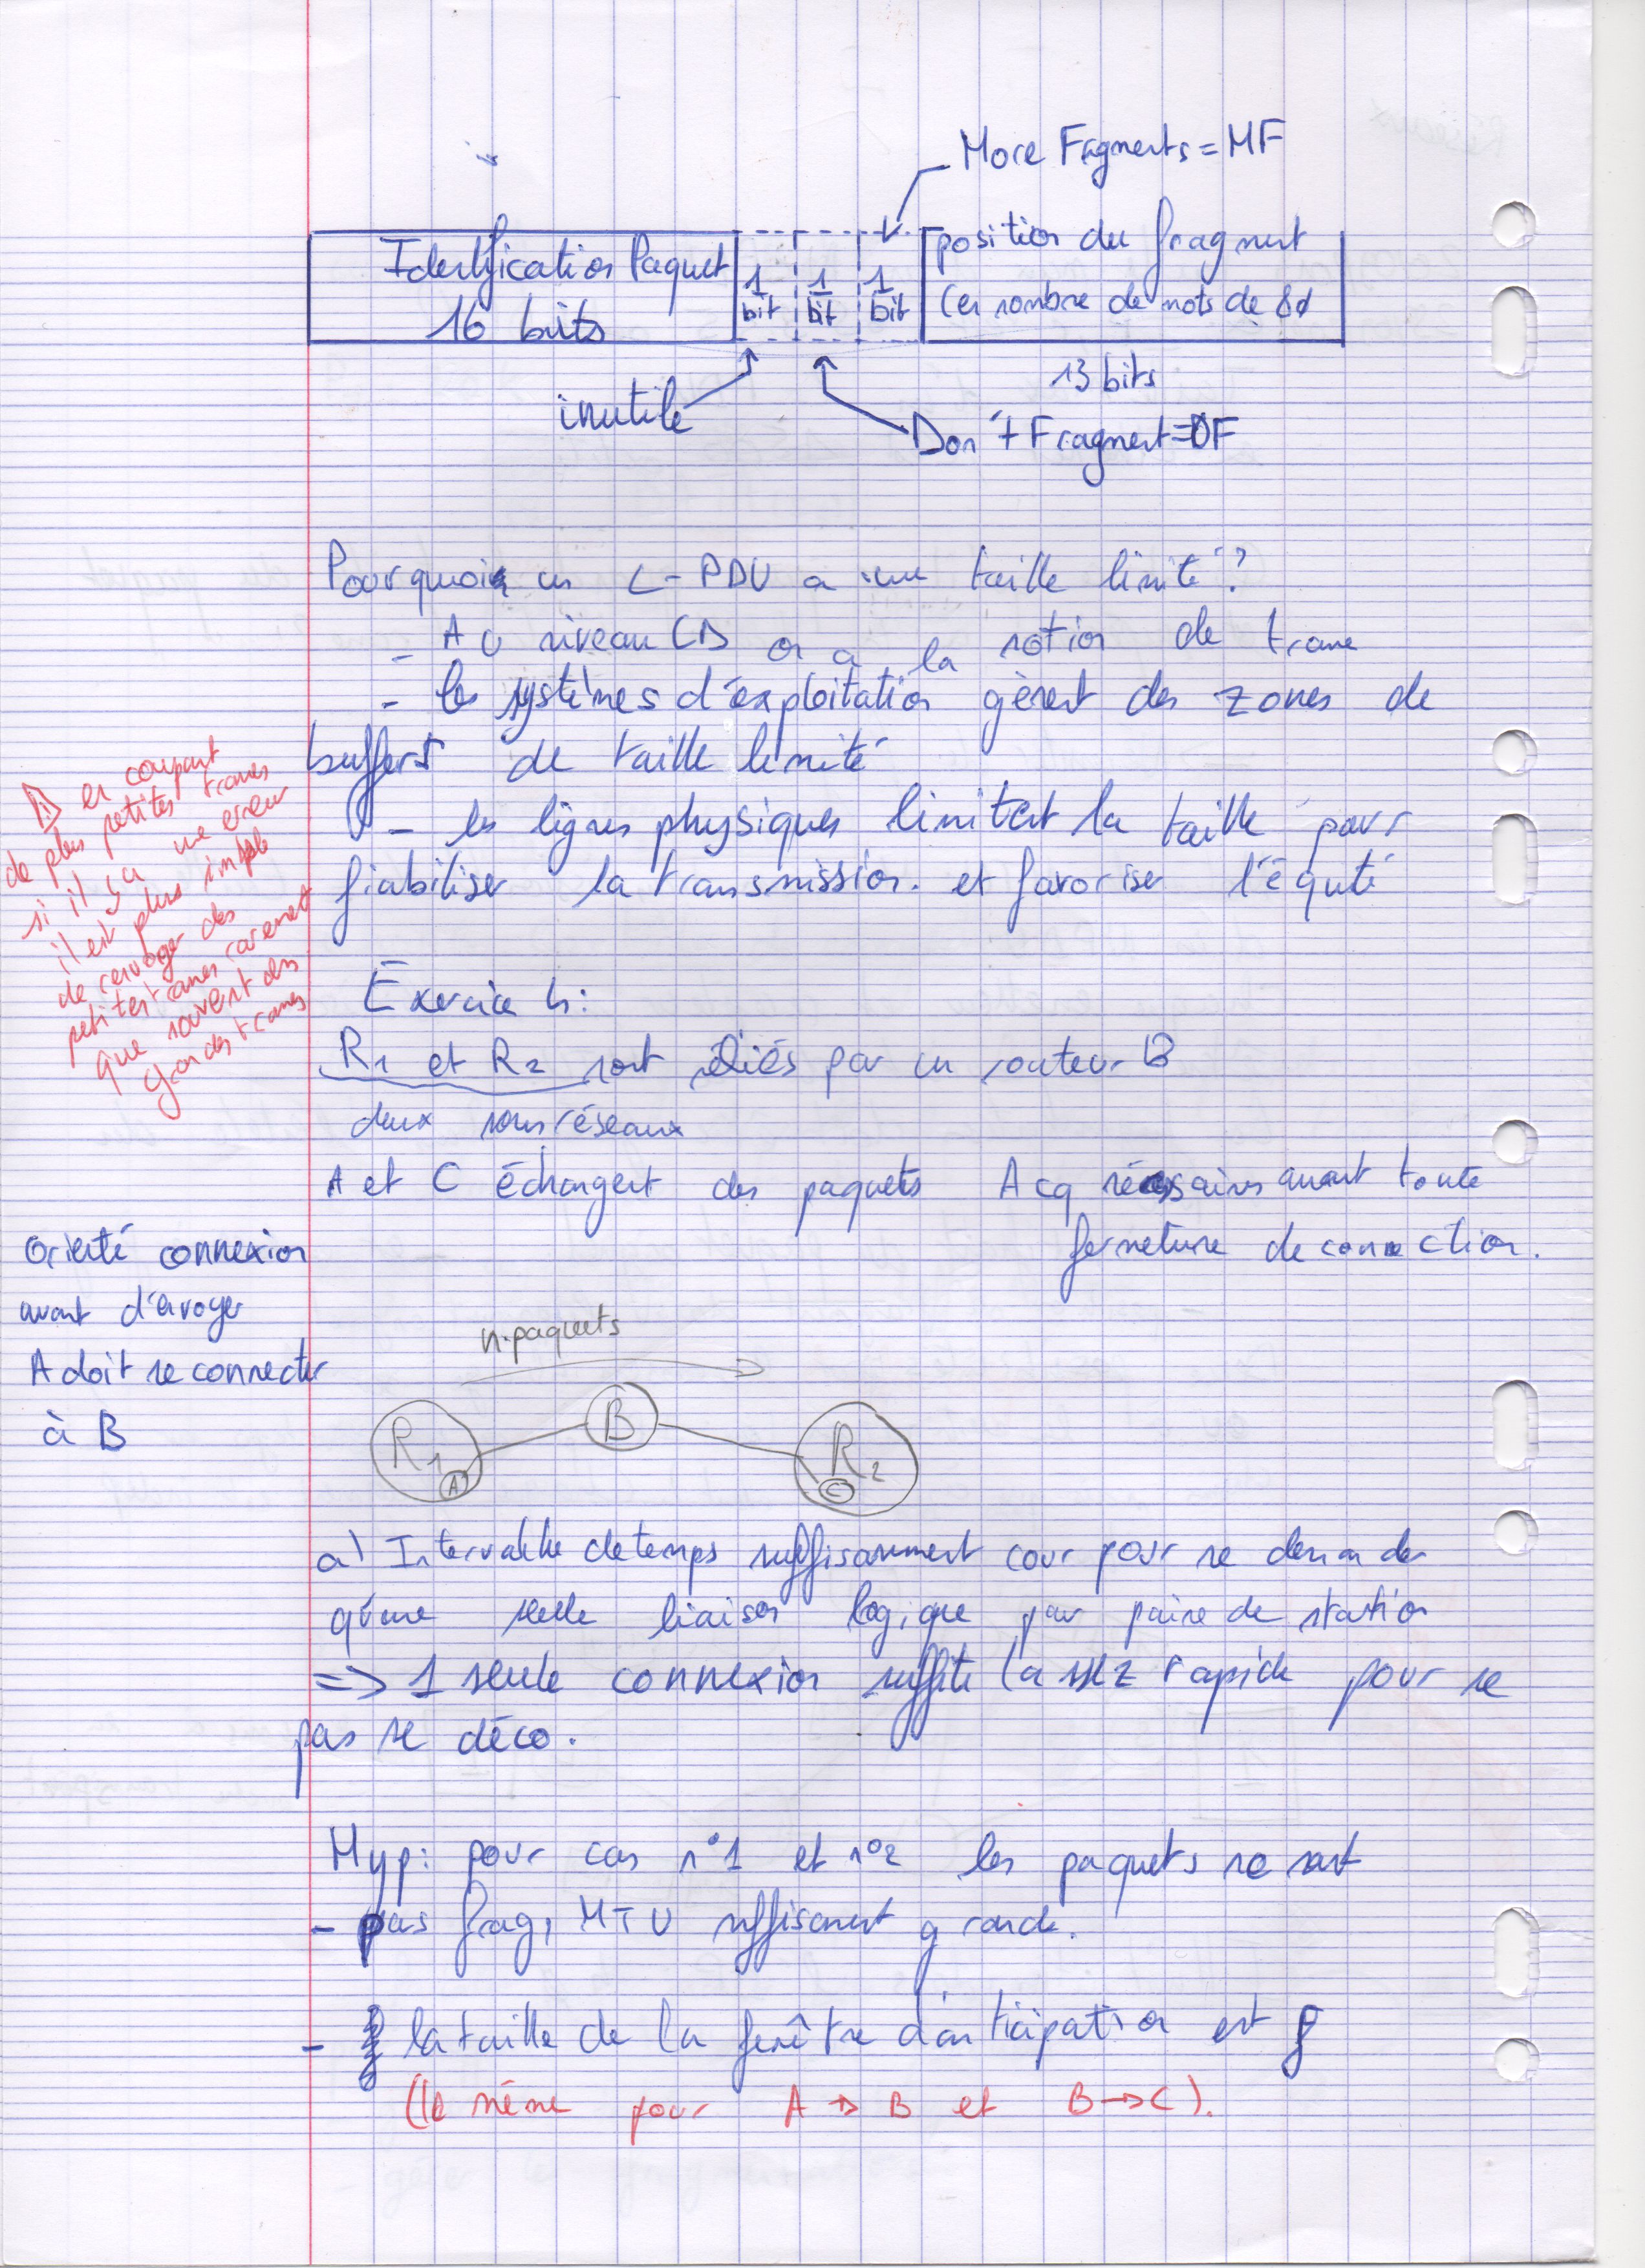 More Fragments = MF
Identification Paquet
16 bits
1 bit
1 bit
1 bit
position du fragment
(en nombre de mots de 8
13 bits
inutile
Don't Fragment = DF
Pourquoi un L-PDU a une taille limité ?
- Au niveau on a la notion de trame
- les systèmes d'exploitation gèrent des zones de
buffers de taille limité
- les lignes physiques limitent la taille pour
fiabiliser la transmission. et favoriser l'équité
⚠ en coupant
de plus petites trames
si il y a une erreur
il est plus simple
de renvoyer des
petites trames rarement
que souvent des
grandes trames
Exercice 4 :
R1 et R2 sont reliés par un routeur B
deux sous réseaux
A et C échangent des paquets Acq nécessaires avant toute
fermeture de connection.
Orienté connexion
avant d'envoyer
A doit se connecter
à B
n.paquets
R1
A
B
R2
C
a) Intervalle de temps suffisamment cour pour ne demander
qu'une seule liaison logique par paire de station
=> 1 seule connexion suffite (assez rapide pour ne
pas se déco.
Hyp : pour cas n°1 et n°2 les paquets ne sont
- pas frag, MTU suffisament grande.
- la taille de la fenêtre d'anticipation est f
(le même pour A → B et B → C).